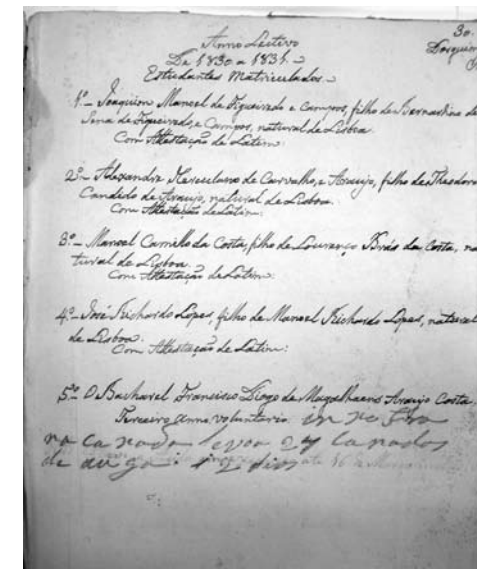 Anno Lectivo
De 1830 a 1831.
Estudantes Matriculados.
30.
1.º - Joaquim Manoel de Figueiredo e Campos, filho de Bernardino de
Sena de Figueiredo, e Campos, natural de Lisboa.
Com Attestação de Latim:
2.º - Alexandre Herculano de Carvalho, e Araujo, filho de Theodoro
Candido de Araujo, natural de Lisboa.
Com Attestação de Latim:
3.º - Manoel Camillo da Costa, filho de Lourenço Brás da Costa, na
tural de Lisboa.
Com Attestação de Latim:
4.º - José Richardo Lopes, filho de Manoel Richardo Lopes, natural
de Lisboa.
Com Attestação de Latim:
5.º O Bacharel Francisco Diogo de Magalhaens Araujo Costa,
Terceiro anno, voluntario.